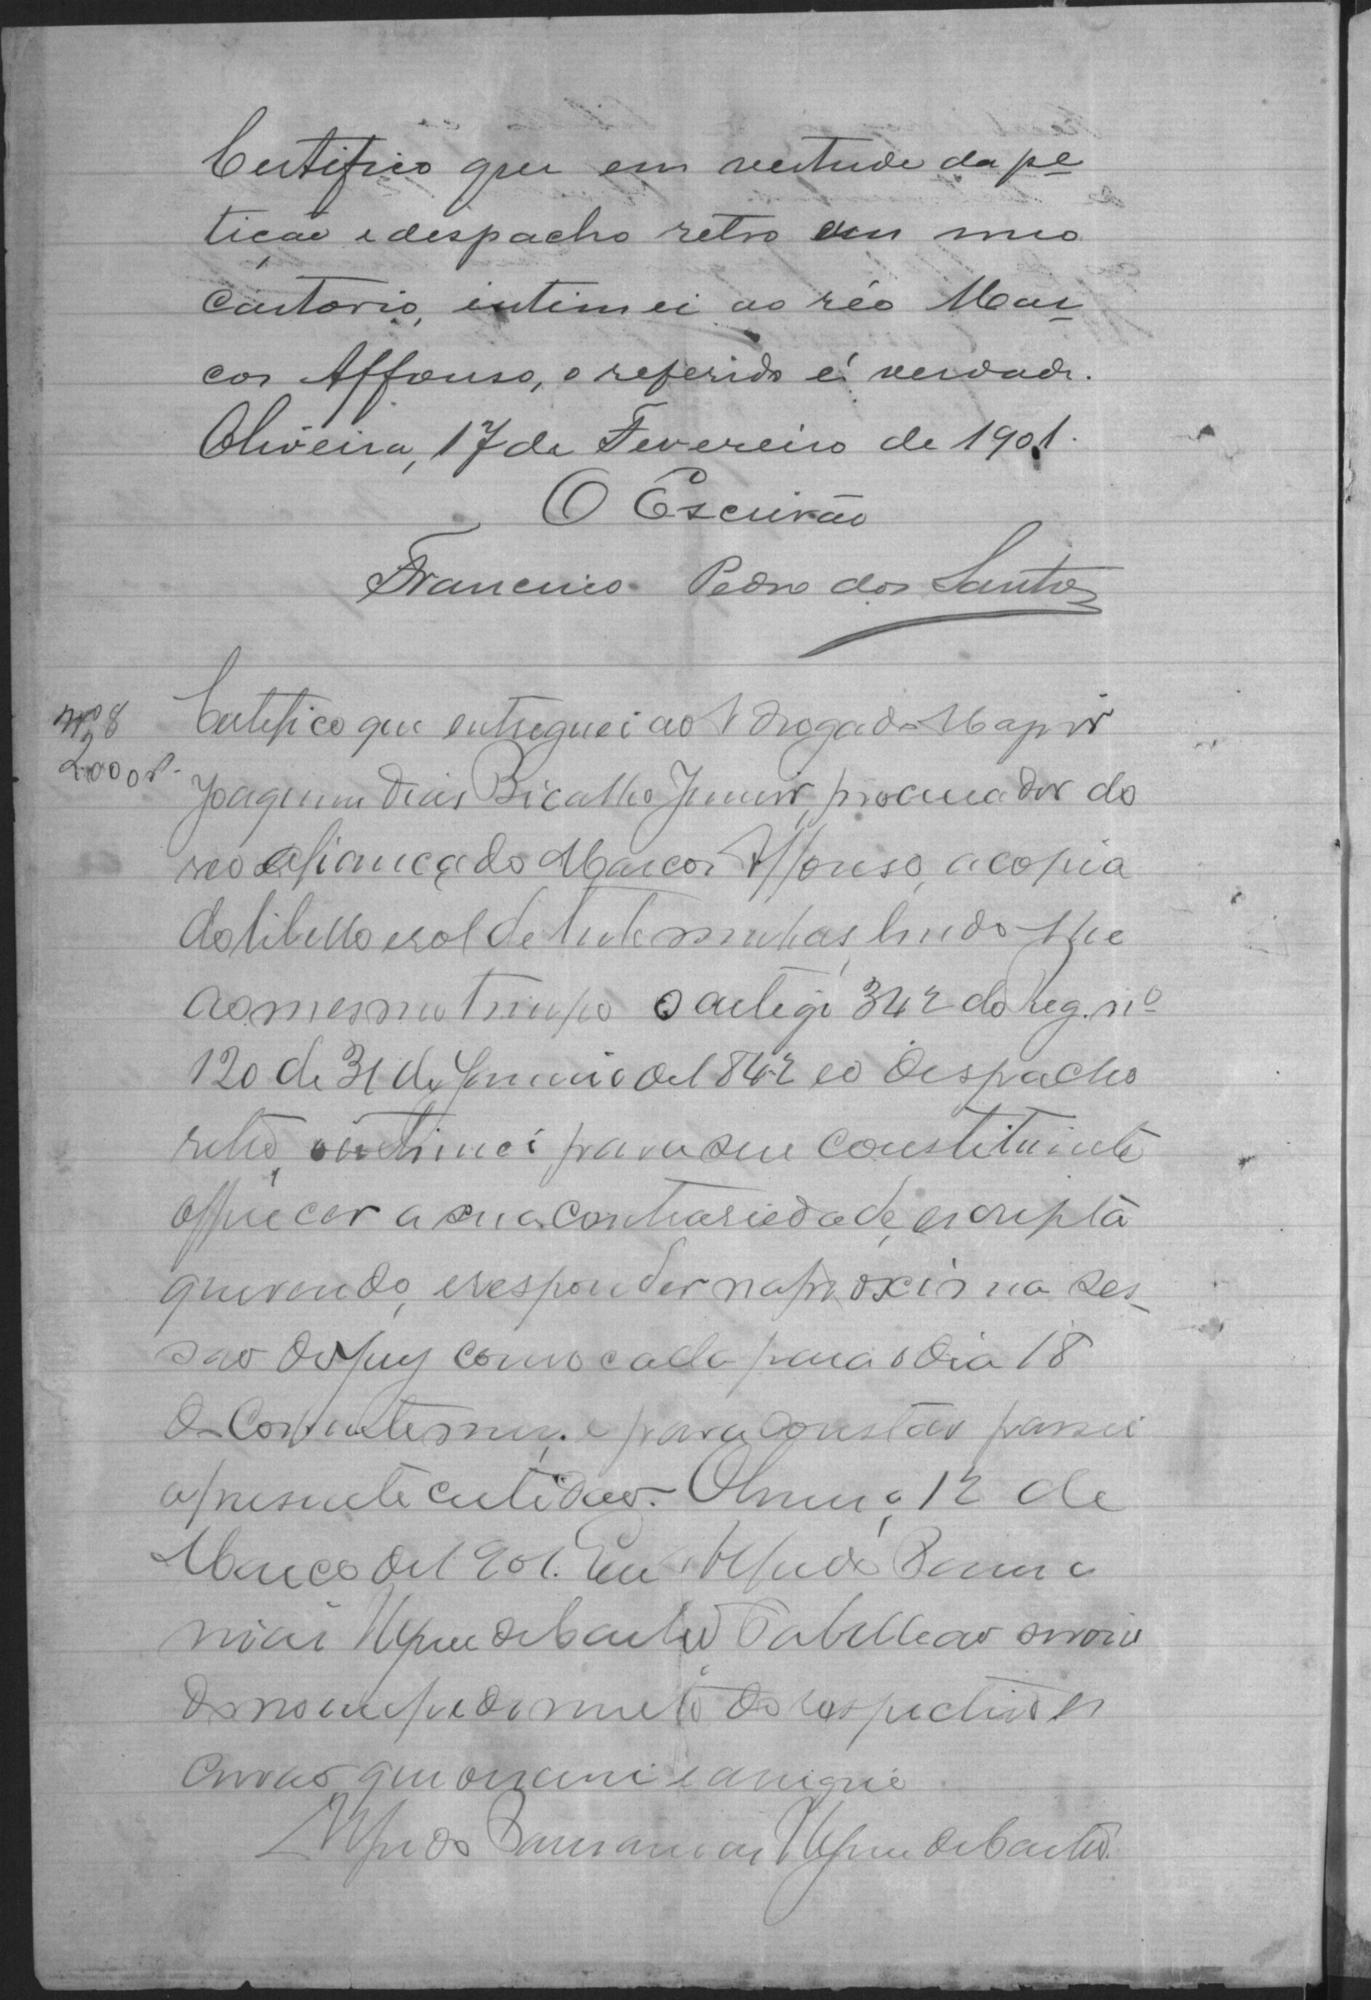 Certifico que em vertude da pe
tição e despacho retro em meo
cartorio, intimei ao réo Mar
cos Affonso, o referido é verdade.
Oliveira, 17 de Fevereiro de 1901.
O Escrivão
Francisco Pedro dos Santos
Nº 8
2000r.
Certifico que entreguei ao Advogado Major
Joaquim Dias Bicalho Junior, procurador do
reo afiançado Marcos Affonso, a copia
do libello e rol de testemunhas, lendo-lhe
ao mesmo tempo o artigo 342 do Reg. nº
120 de 31 de Janeiro de 1842 e o despacho
retro, o intimei para seu constituinte
offrecer a sua contrariedade, escripta
querendo, e responder na proxima ses
são do jury convocada para o dia 18
do corrente mez. e para constar passei
a presente certidão. Oliveira, 12 de
Março de 1901. Eu Alfredo
de Castro Tabelleão servin
do no impedimento do respectivo es
crivão, que escrevi e assignei.
Alfredo de Castro.